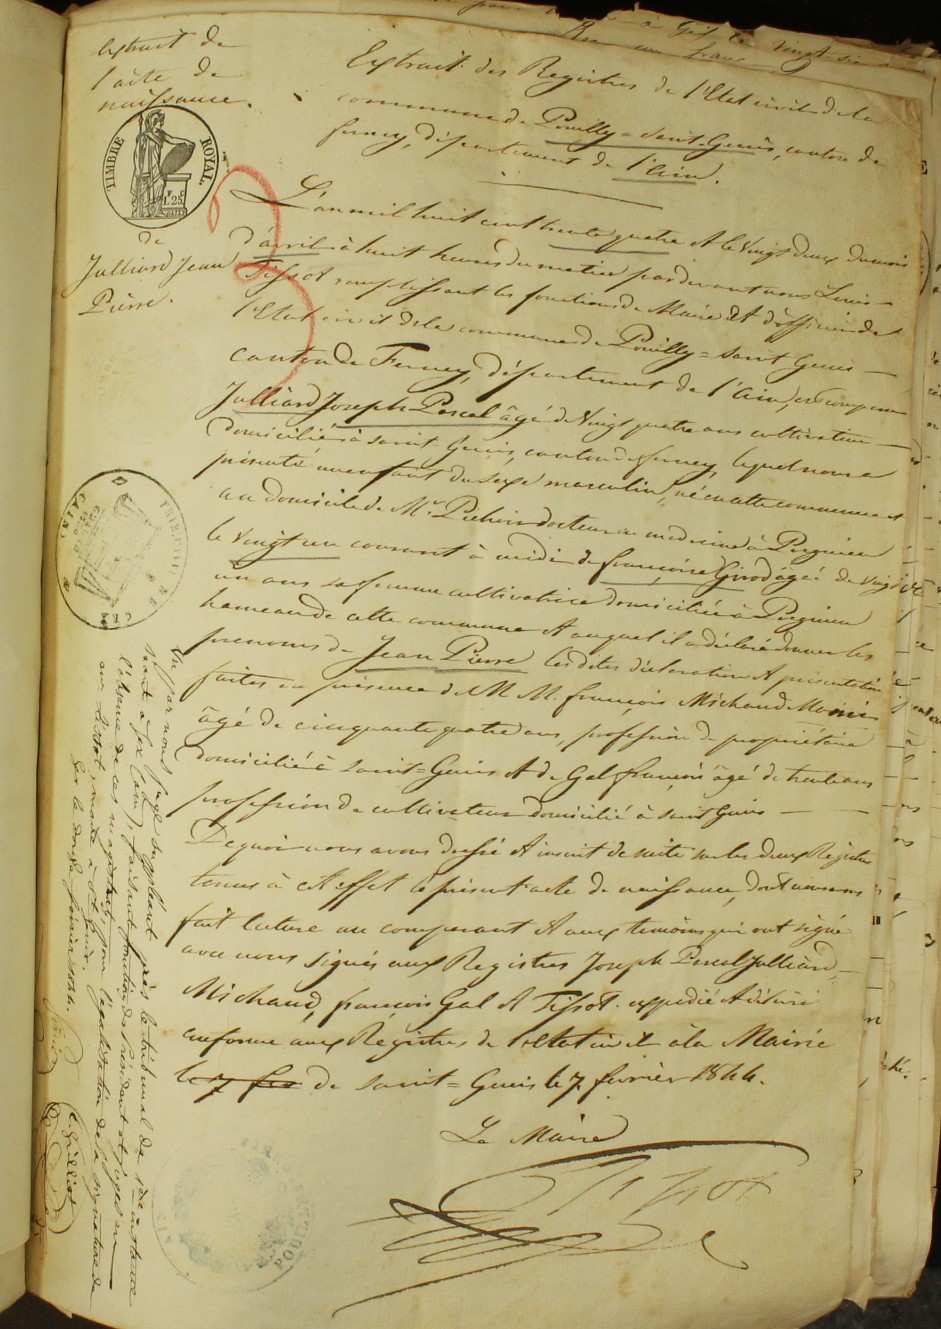 Extrait de
l'acte de
naissance.
TIMBRE ROYAL.
1.25
de
Julliard Jean
Pierre.
Extrait des Registres de l'Etat civil de la
commune de Pouilly = Saint-Genis, canton de
ferney, département de l'ain.
L'an mil huit cent trente quatre et le vingt deux du mois
d'avril à huit heures du matin pardevant nous Louis
Tissot remplissant les fonctions de Maire et d'officier de
l'Etat civil de la commune de Pouilly = Saint Genis
canton de Ferney, département de l'ain, est comparu
Julliard Joseph Pascal âgé de vingt quatre ans cultivateur
domicilié à saint Genis, canton de ferney, lequel nous a
présenté un enfant du sexe masculin, né en cette commune et
au domicile de Mr docteur en medecine à Pregnin
le vingt un courant à midi de françoise Girod âgée de vingt et
un ans sa femme cultivatrice domiciliée à Pregnin
hameau de cette commune et auquel il a déclaré donner les
prenoms de Jean Pierre les dites déclaration et présentation
faites en présence de M M. françois Michaud
âgé de cinquante quatre ans, profession de propriétaire
domicilié à saint-Genis et de Gal françois âgé de trente ans
profession de cultivateur domicilié à saint Genis
De quoi nous avons dressé et inscrit de suite sur les deux Registres
tenus à cet effet le présent acte de naissance, dont avons
fait lecture au comparant et aux temoins qui ont signé
avec nous signés aux Registres Joseph Pascal Julliard,
Michaud, françois Gal et Tissot. expédié et déclaré
conforme aux Régistres de l'Etat civil à la Mairie
le 7 fre de saint = Genis le 7 février 1844.
Le Maire
Tissot
TRIBUNAL DE
GEX
(AIN)
Vu par nous juge suppléant près le tribunal de 1ère instance
séant à Gex (ain), faisant fonction de Président et juges en
l'absence de ces magistrats, pour légalisation de la signature de
Mr Tissot, maire à St Genis.
Gex le douze février 1844.
POUILLY
AIN